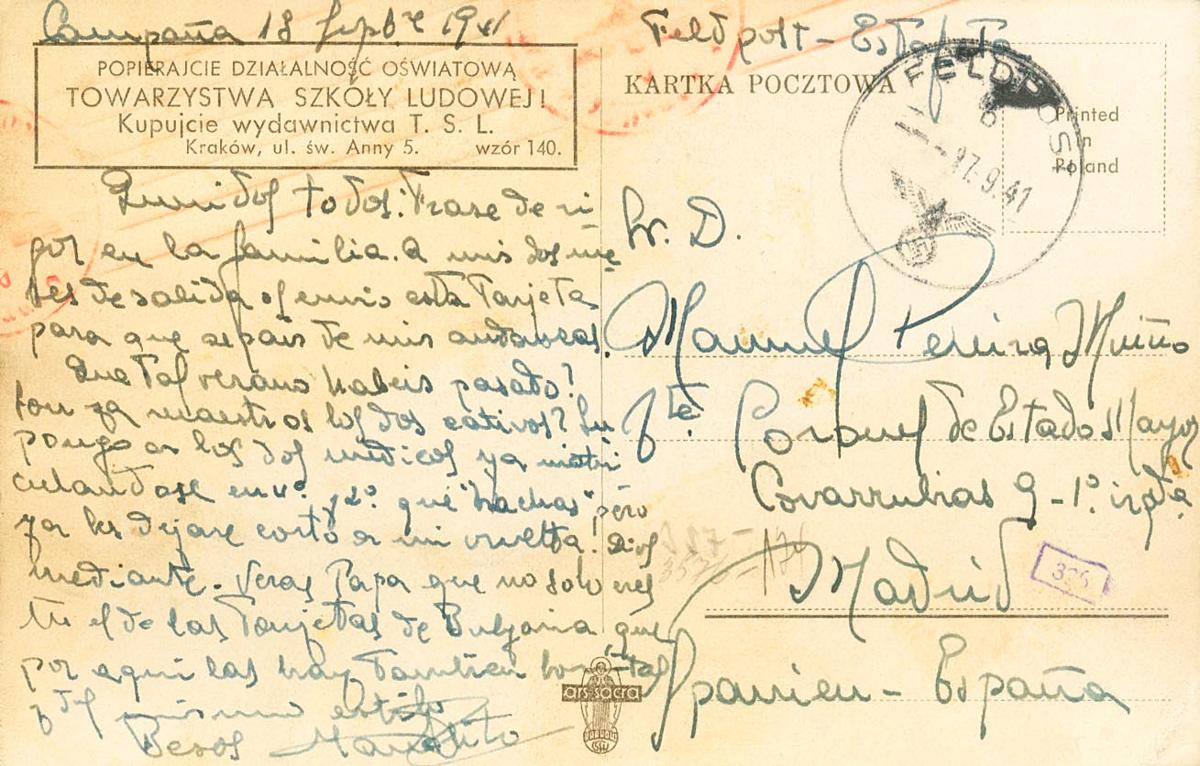 Campaña 18 Sepbre 1941
POPIERAJCIE DZIAŁALNOŚĆ OŚWIATOWĄ
TOWARZYSTWA SZKOŁY LUDOWEJ!
Kupujcie wydawnictwa T. S. L.
Kraków, ul. św. Anny 5. wzór 140.
Queridos todos: Frase de ri
gor en la familia. A mis dos me
ses de salida os envio esta Tarjeta
para que sepais de mis andanzas.
Que tal verano habeis pasado?
Son ya maestros los dos cativos? Su
pongo a los dos medicos ya matri
culandose en 4º. y 2º. qué "hachas" pero
ya les dejare corto a mi vuelta. Dios
mediante. Veras Papa que no solo eres
tu el de las Tarjetas de Bulgaria que
por aqui las hay tambien bonitas
y del mismo estilo
Besos Manolito
ars sacra
Feldpost - Estafeta
KARTKA POCZTOWA
FELDPOST
b
-17.9.41
Printed
in
Poland
Sr. D.
Manuel Pereira Muiño
Tte. Coronel de Estado Mayor
Covarrubias 9 - 1º. izqda
Madrid
326
Spanien - España